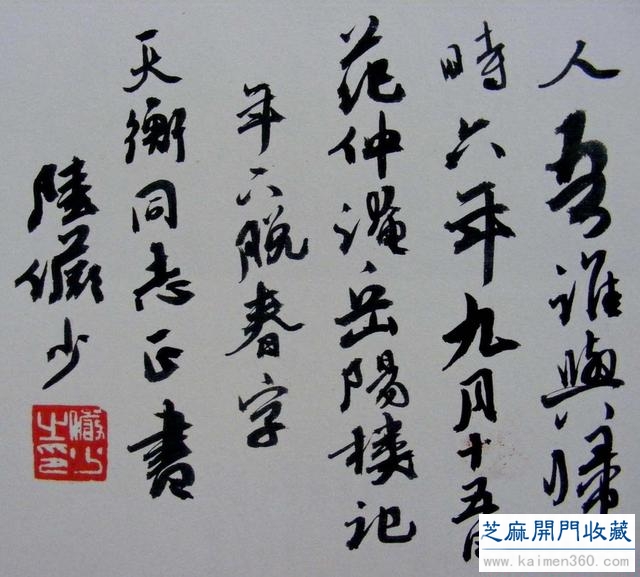 人吾誰與歸
時六年九月十五日
范仲淹岳陽樓記
年下脱春字
天衡同志正書
陸儼少
儼少之印
芝麻開門收藏
www.kaimen360.com